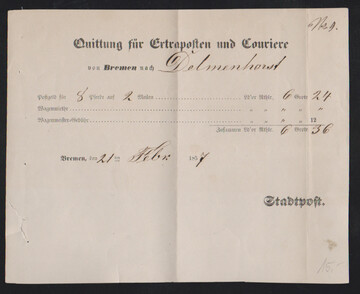 No 9.
Quittung für Extraposten und Couriere
von Bremen nach Delmenhorst
Postgeld für 8 Pferde auf 2 Meilen Ld'or Rthlr. 6 Grote 24
Wagenmiethe " " " "
Wagenmeister-Gebühr " " " 12
Zusammen Ld'or Rthlr. 6 Grote 36
Bremen, den 21ten Febr 1857
Stadtpost.